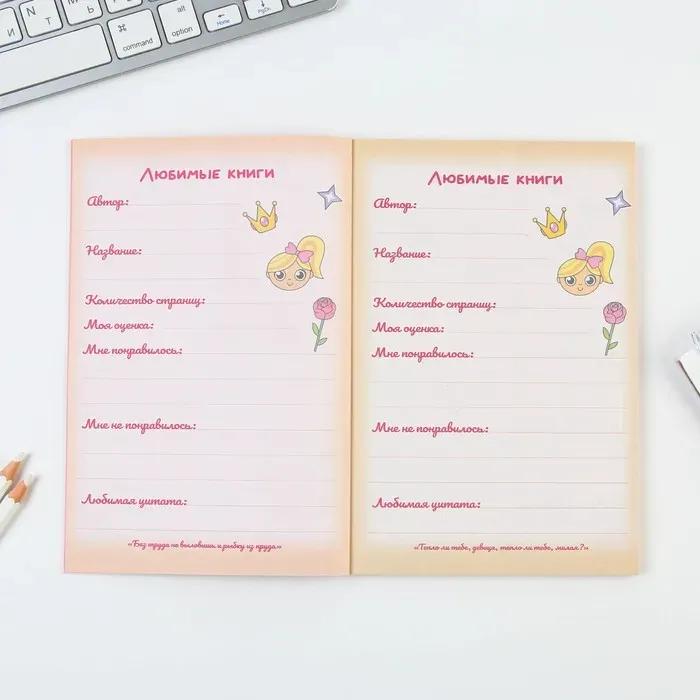 И
N
Т
Ь
command
⌘
alt
option
Home
PgDn
Любимые книги
Автор:
Название:
Количество страниц:
Моя оценка:
Мне понравилось:
Мне не понравилось:
Любимая цитата:
«Без труда не выловишь и рыбку из пруда»
Любимые книги
Автор:
Название:
Количество страниц:
Моя оценка:
Мне понравилось:
Мне не понравилось:
Любимая цитата:
«Тепло ли тебе, девица, тепло ли тебе, милая?»